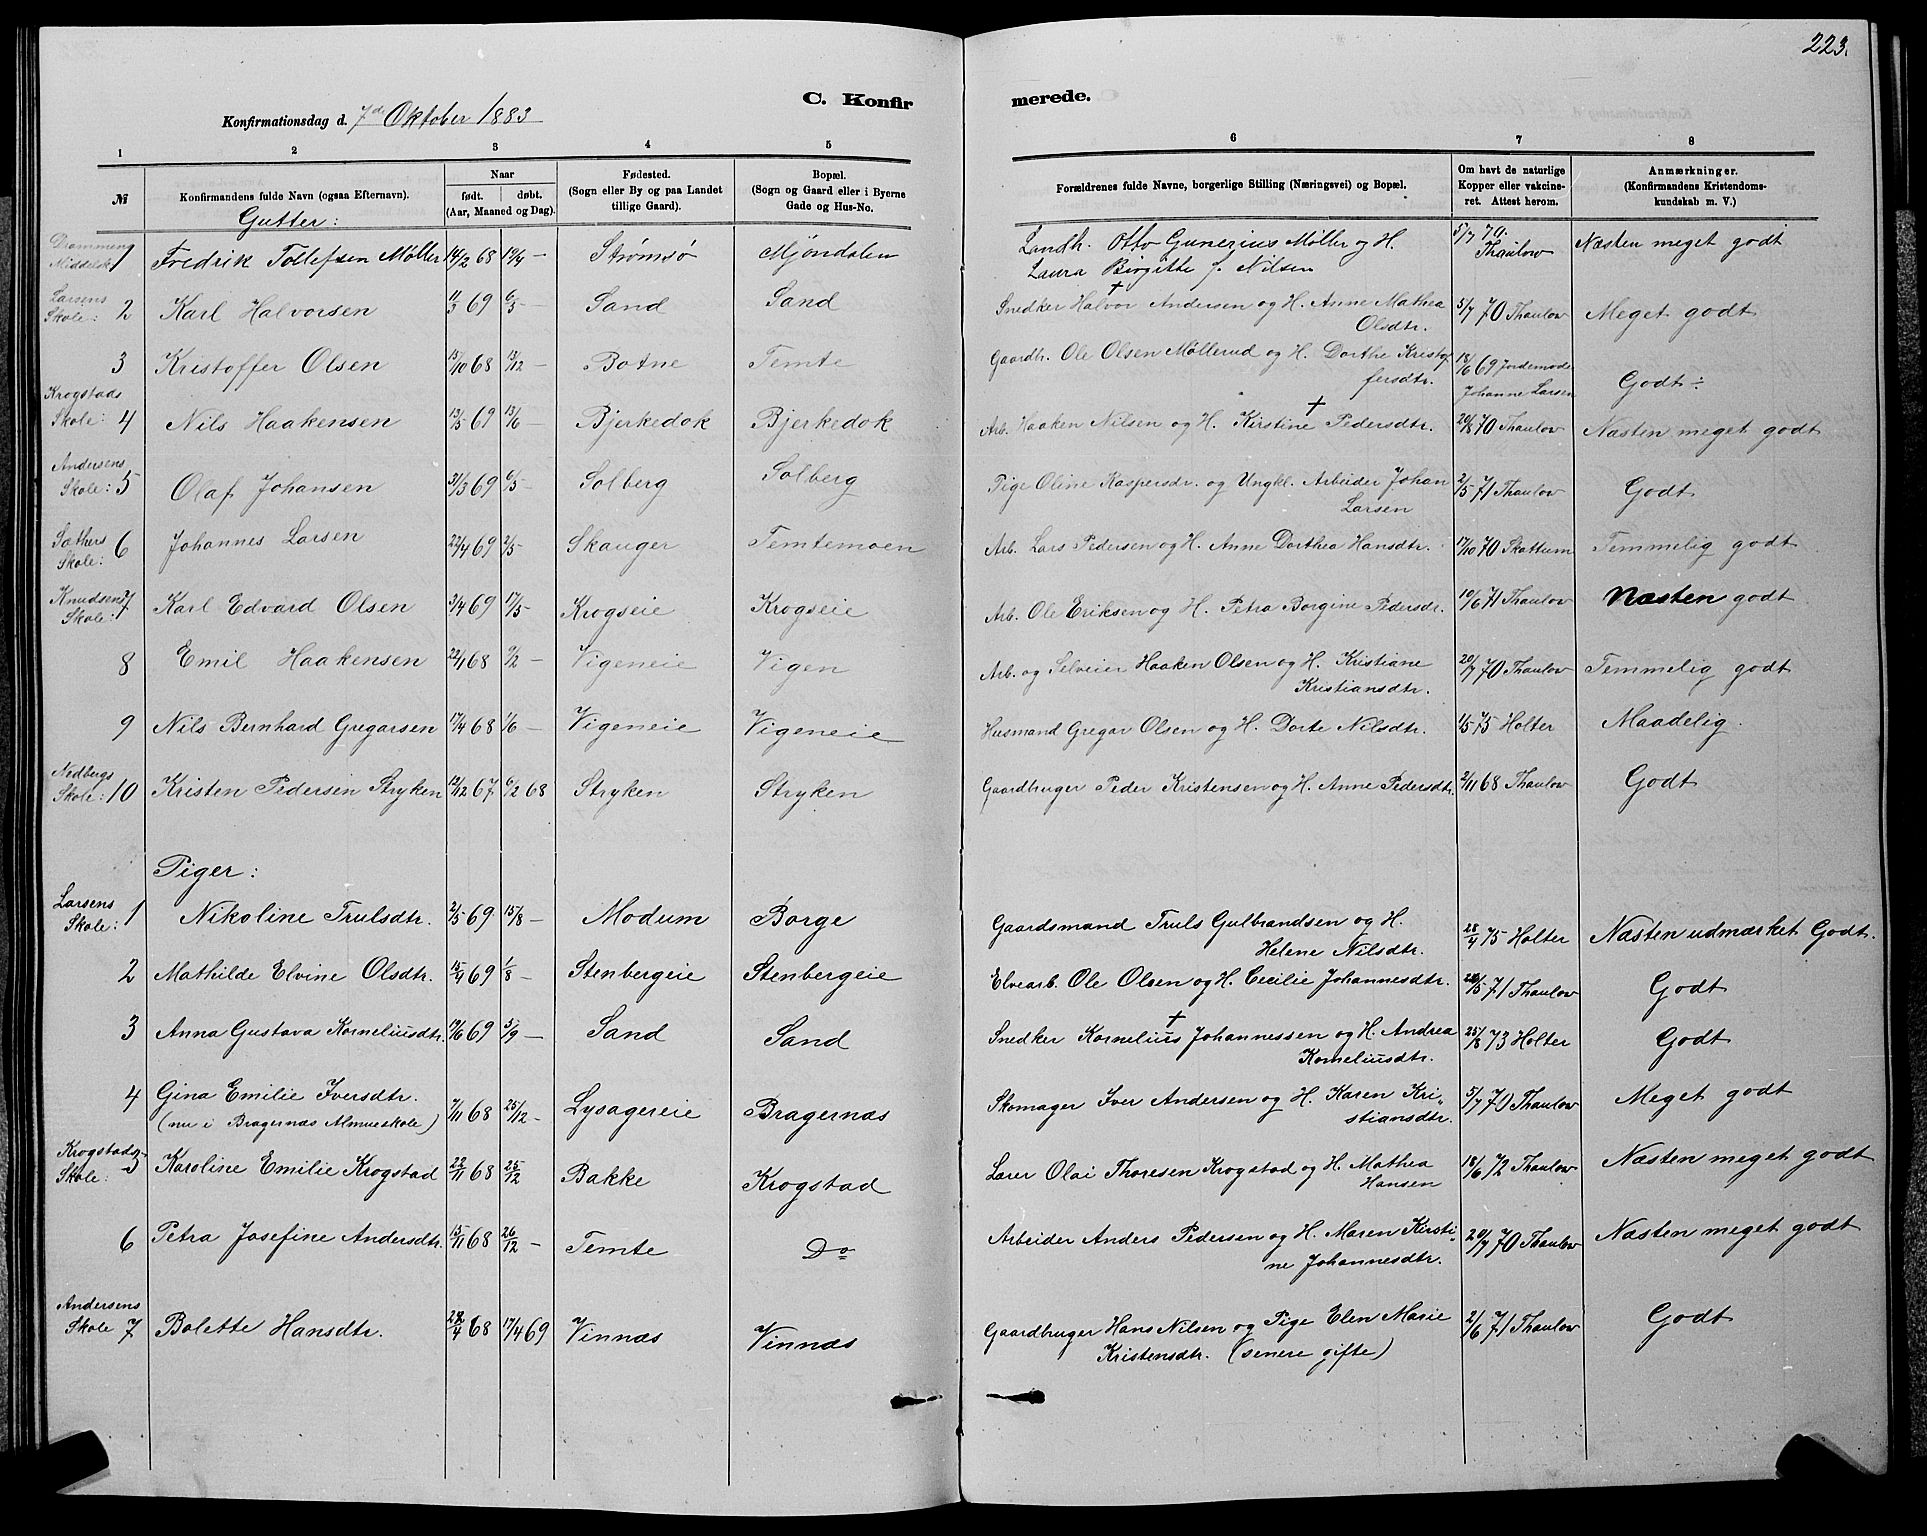 223.
C. Konfirmerede.
Konfirmationsdag d. 7de Oktober 1883
1 2 3 4 5 6 7 8
№ | Konfirmandens fulde Navn (ogsaa Efternavn). | Naar født. døbt. (Aar, Maaned og Dag). | Fødested. (Sogn eller By og paa Landet tillige Gaard). | Bopæl. (Sogn og Gaard eller i Byerne Gade og Hus-No. | Forældrenes fulde Navne, borgerlige Stilling (Næringsvei) og Bopæl. | Om havt de naturlige Kopper eller vakcineret. Attest herom. | Anmærkninger. (Konfirmandens Kristendomskundskab m. V.)
Gutter:
Drammens Middelsk. 1 Fredrik Tollefsen Møller 14/2 68 19/4 — Strømsø Mjöndalen Landh. Otto Gunerius Møller og H. Laura Birgitte f. Nilsen 5/7 70 Thaulow Næsten meget godt
Larsens Skole: 2 Karl Halvorsen 11/3 69 6/5 — Sand Sand Snedker Halvor † Andersen og H. Anne Mathea Olsdtr. 5/7 70 Thaulow Meget godt
3 Kristoffer Olsen 15/10 68 13/12 — Botne Temte Gaardbr. Ole Olsen Møllerud og H. Dorthe Kristoffersdtr. 18/6 69 Jordemode Johanne Larsen Godt ÷
Krogstads Skole: 4 Nils Haakensen 13/5 69 13/6 — Bjerkedok Bjerkedok Arb. Haaken Nilsen og H. Kirstine † Pedersdtr. 20/8 70 Thaulow Næsten meget godt
Andersens Skole: 5 Olaf Johansen 31/3 69 6/5 — Solberg Solberg Pige Oline Kaspersdr. og Ungkl. Arbeider Johan Larsen 2/5 71 Thaulow Godt
Sæthers Skole: 6 Johannes Larsen 22/4 69 2/5 — Skauger Temtemoen Arb. Lars Pedersen og H. Anne Dorthea Hansdtr. 17/10 70 Skattum Temmelig godt
Knudsens Skole: 7 Karl Edvard Olsen 3/4 69 17/5 — Krogseie Krogseie Arb. Ole Eriksen og H. Petra Borgine Pedersdr. 10/6 71 Thaulow Næsten godt
8 Emil Haakensen 22/1 68 9/2 — Vigeneie Vigen Arb. og Selveier Haaken Olsen og H. Kristiane Kristiansdtr. 20/7 70 Thaulow Temmelig godt
9 Nils Bernhard Gregarsen 17/4 68 1/6 — Vigeneie Vigeneie Husmand Gregar Olsen og H. Dorte Nilsdtr. 1/5 75 Holter Maadelig.
Nedbergs Skole: 10 Kristen Pedersen Stryken 12/12 67 6/2 68 Stryken Stryken Gaardbruger Peder Kristensen og H. Anne Pedersdtr. 2/11 68 Thaulow Godt
Piger:
Larsens Skole: 1 Nikoline Trulsdtr. 2/5 69 15/8 — Modum Borge Gaardsmand Truls Gulbrandsen og H. Helene Nilsdtr. 28/4 75 Holter Næsten udmærket Godt.
2 Mathilde Elvine Olsdtr. 15/4 69 1/8 — Stenbergeie Stenbergeie Elvearb. Ole Olsen og H. Cecilie Johannesdtr. 20/5 71 Thaulow Godt
3 Anna Gustava Korneliusdtr. 19/6 69 5/9 — Sand Sand Snedker Kornelius † Johannessen og H. Andrea Korneliusdtr. 25/8 73 Holter Godt
4 Gina Emilie Iversdtr. (nu i Bragernæs Almueskole) 7/11 68 25/12 — Lysagereie Bragernæs Skomager Iver Andersen og H. Karen Kristiansdtr. 5/7 70 Thaulow Meget godt
Krogstads Skole: 5 Karoline Emilie Krogstad 22/11 68 25/12 Bakke Krogstad Lærer Olai Thoresen Krogstad og H. Mathea Hansen 18/6 72 Thaulow Næsten meget godt
6 Petra Josefine Andersdtr. 15/11 68 26/12 — Temte Do Arbeider Anders Pedersen og H. Maren Kirstine Johannesdtr. 20/7 70 Thaulow Næsten meget godt
Andersens Skole 7 Bolette Hansdtr. 28/4 68 17/4 69 Vinnæs Vinnæs Gaardbruger Hans Nilsen og Pige Elen Marie Kristensdtr. (senere gifte) 2/6 71 Thaulow Godt